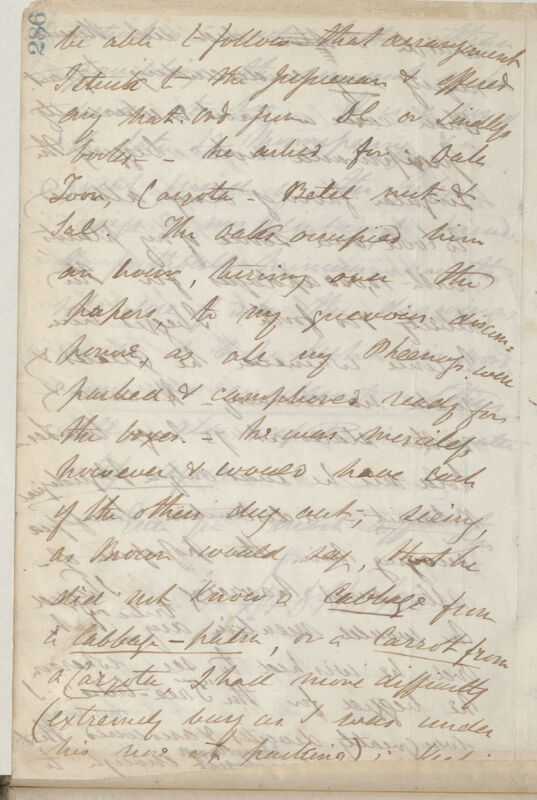 286
be able to follow that arrangement
I stuck to the Jussieuan & offered
any Nat. Ord from DC or Lindleys
books — he asked for Oak
Toon, Caryota — Betel nut &
Sal. The oaks occupied him
an hour, turning over the
papers, to my grievous discom=
, as all my Phaenogs were
packed & camphored ready for
the boxes. — he was merciless
however & would have each
of the others dug out; seeing,
as Brown would say, that he
did not know a Cabbage from
a Cabbage-palm, or a Carrot from
a Caryota I had more difficulty
(extremely busy as I was under
his nose at packing)